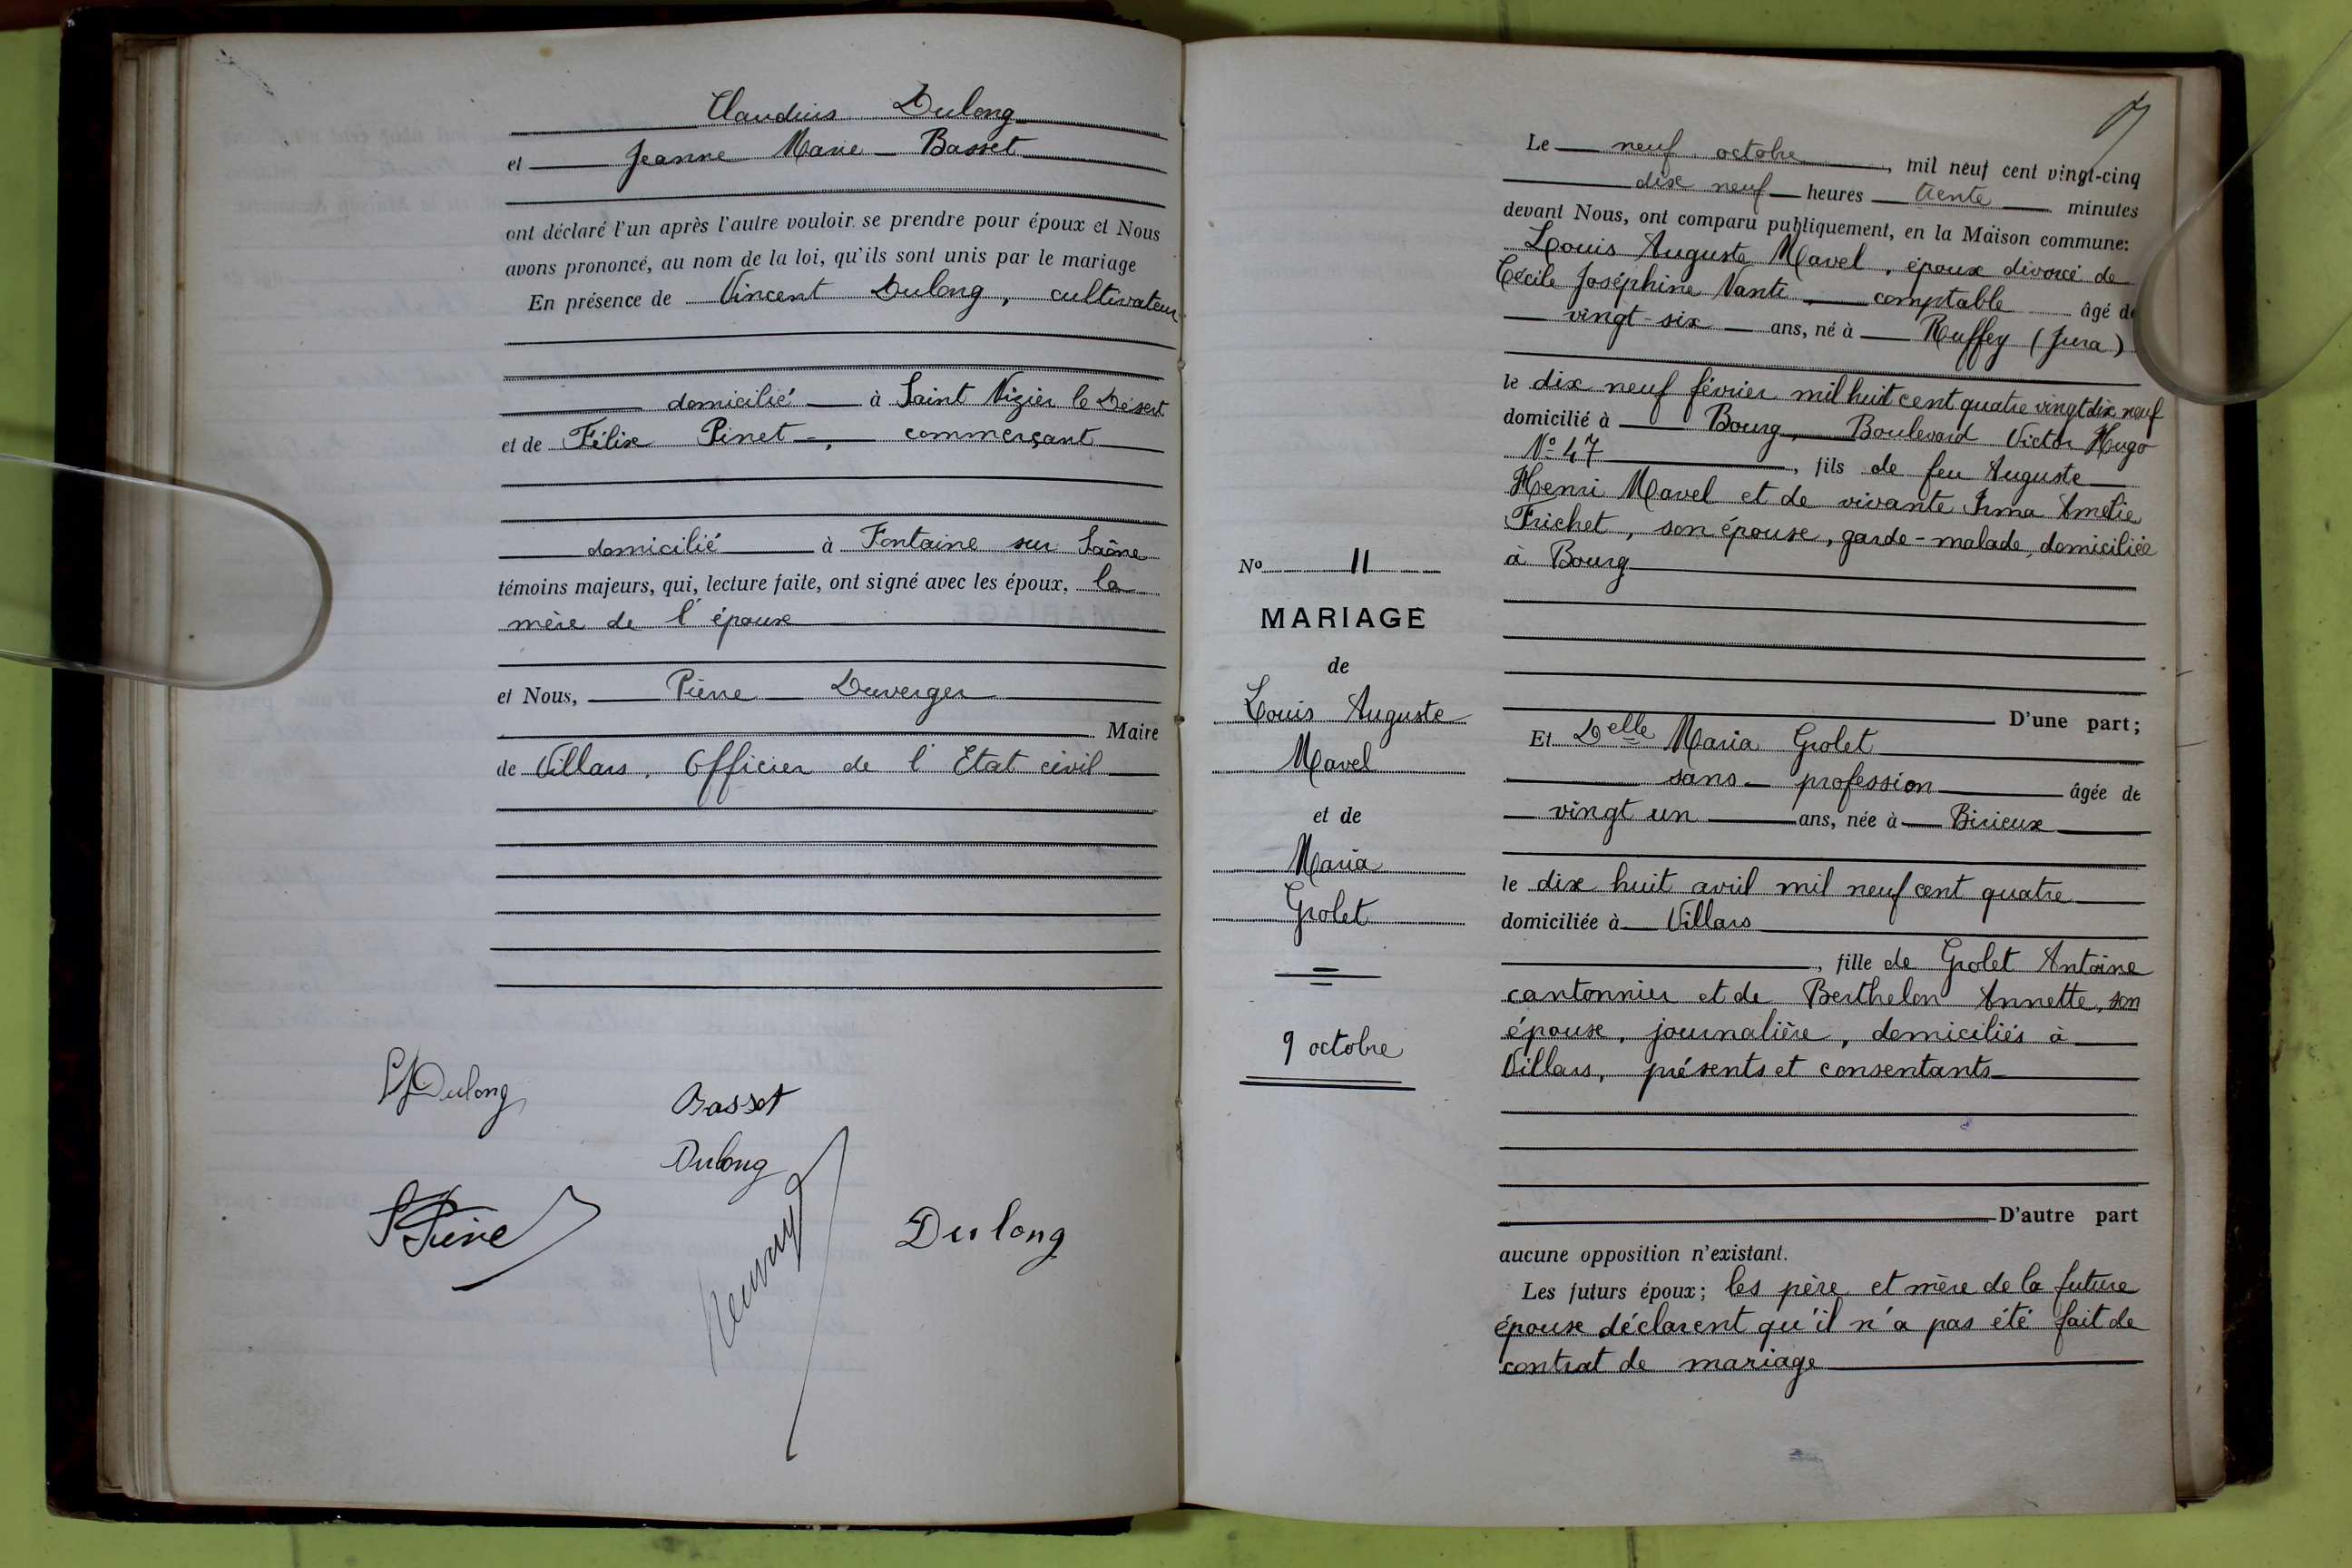 Claudius Dulong
et Jeanne Marie Basset
ont déclaré l'un après l'autre vouloir se prendre pour époux et Nous
avons prononcé, au nom de la loi, qu'ils sont unis par le mariage
En présence de Vincent Dulong, cultivateur
domicilié à Saint Nizier le Désert
et de Félix Pinet, commerçant
domicilié à Fontaine sur Saône
témoins majeurs, qui, lecture faite, ont signé avec les époux, la
mère de l'épouse
et Nous, Pierre Duverger
Maire
de Villars. Officier de l'Etat civil
Dulong
Basset
Dulong
Dulong
Le neuf octobre, mil neuf cent vingt-cinq
dix neuf heures trente minutes
devant Nous, ont comparu publiquement, en la Maison commune:
Louis Auguste Mavel, époux divorcé de
Cécile Joséphine Vanti, comptable âgé de
vingt-six ans, né à Ruffey (Jura)
le dix neuf février mil huit cent quatre vingt dix neuf
domicilié à Bourg, Boulevard Victor Hugo
N° 47, fils de feu Auguste
Henri Mavel et de vivante Irma Amélie
Frichet, son épouse, garde-malade, domiciliée
à Bourg
D'une part;
No 11
MARIAGE
de
Louis Auguste
Mavel
et de
Maria
Grolet
9 octobre
Et Delle Maria Grolet
sans profession âgée de
vingt un ans, née à Birieux
le dix huit avril mil neuf cent quatre
domiciliée à Villars
, fille de Grolet Antoine
cantonnier et de Berthelon Annette, son
épouse, journalière, domiciliés à
Villars, présents et consentants
D'autre part
aucune opposition n'existant.
Les futurs époux; les père et mère de la future
épouse déclarent qu'il n'a pas été fait de
contrat de mariage